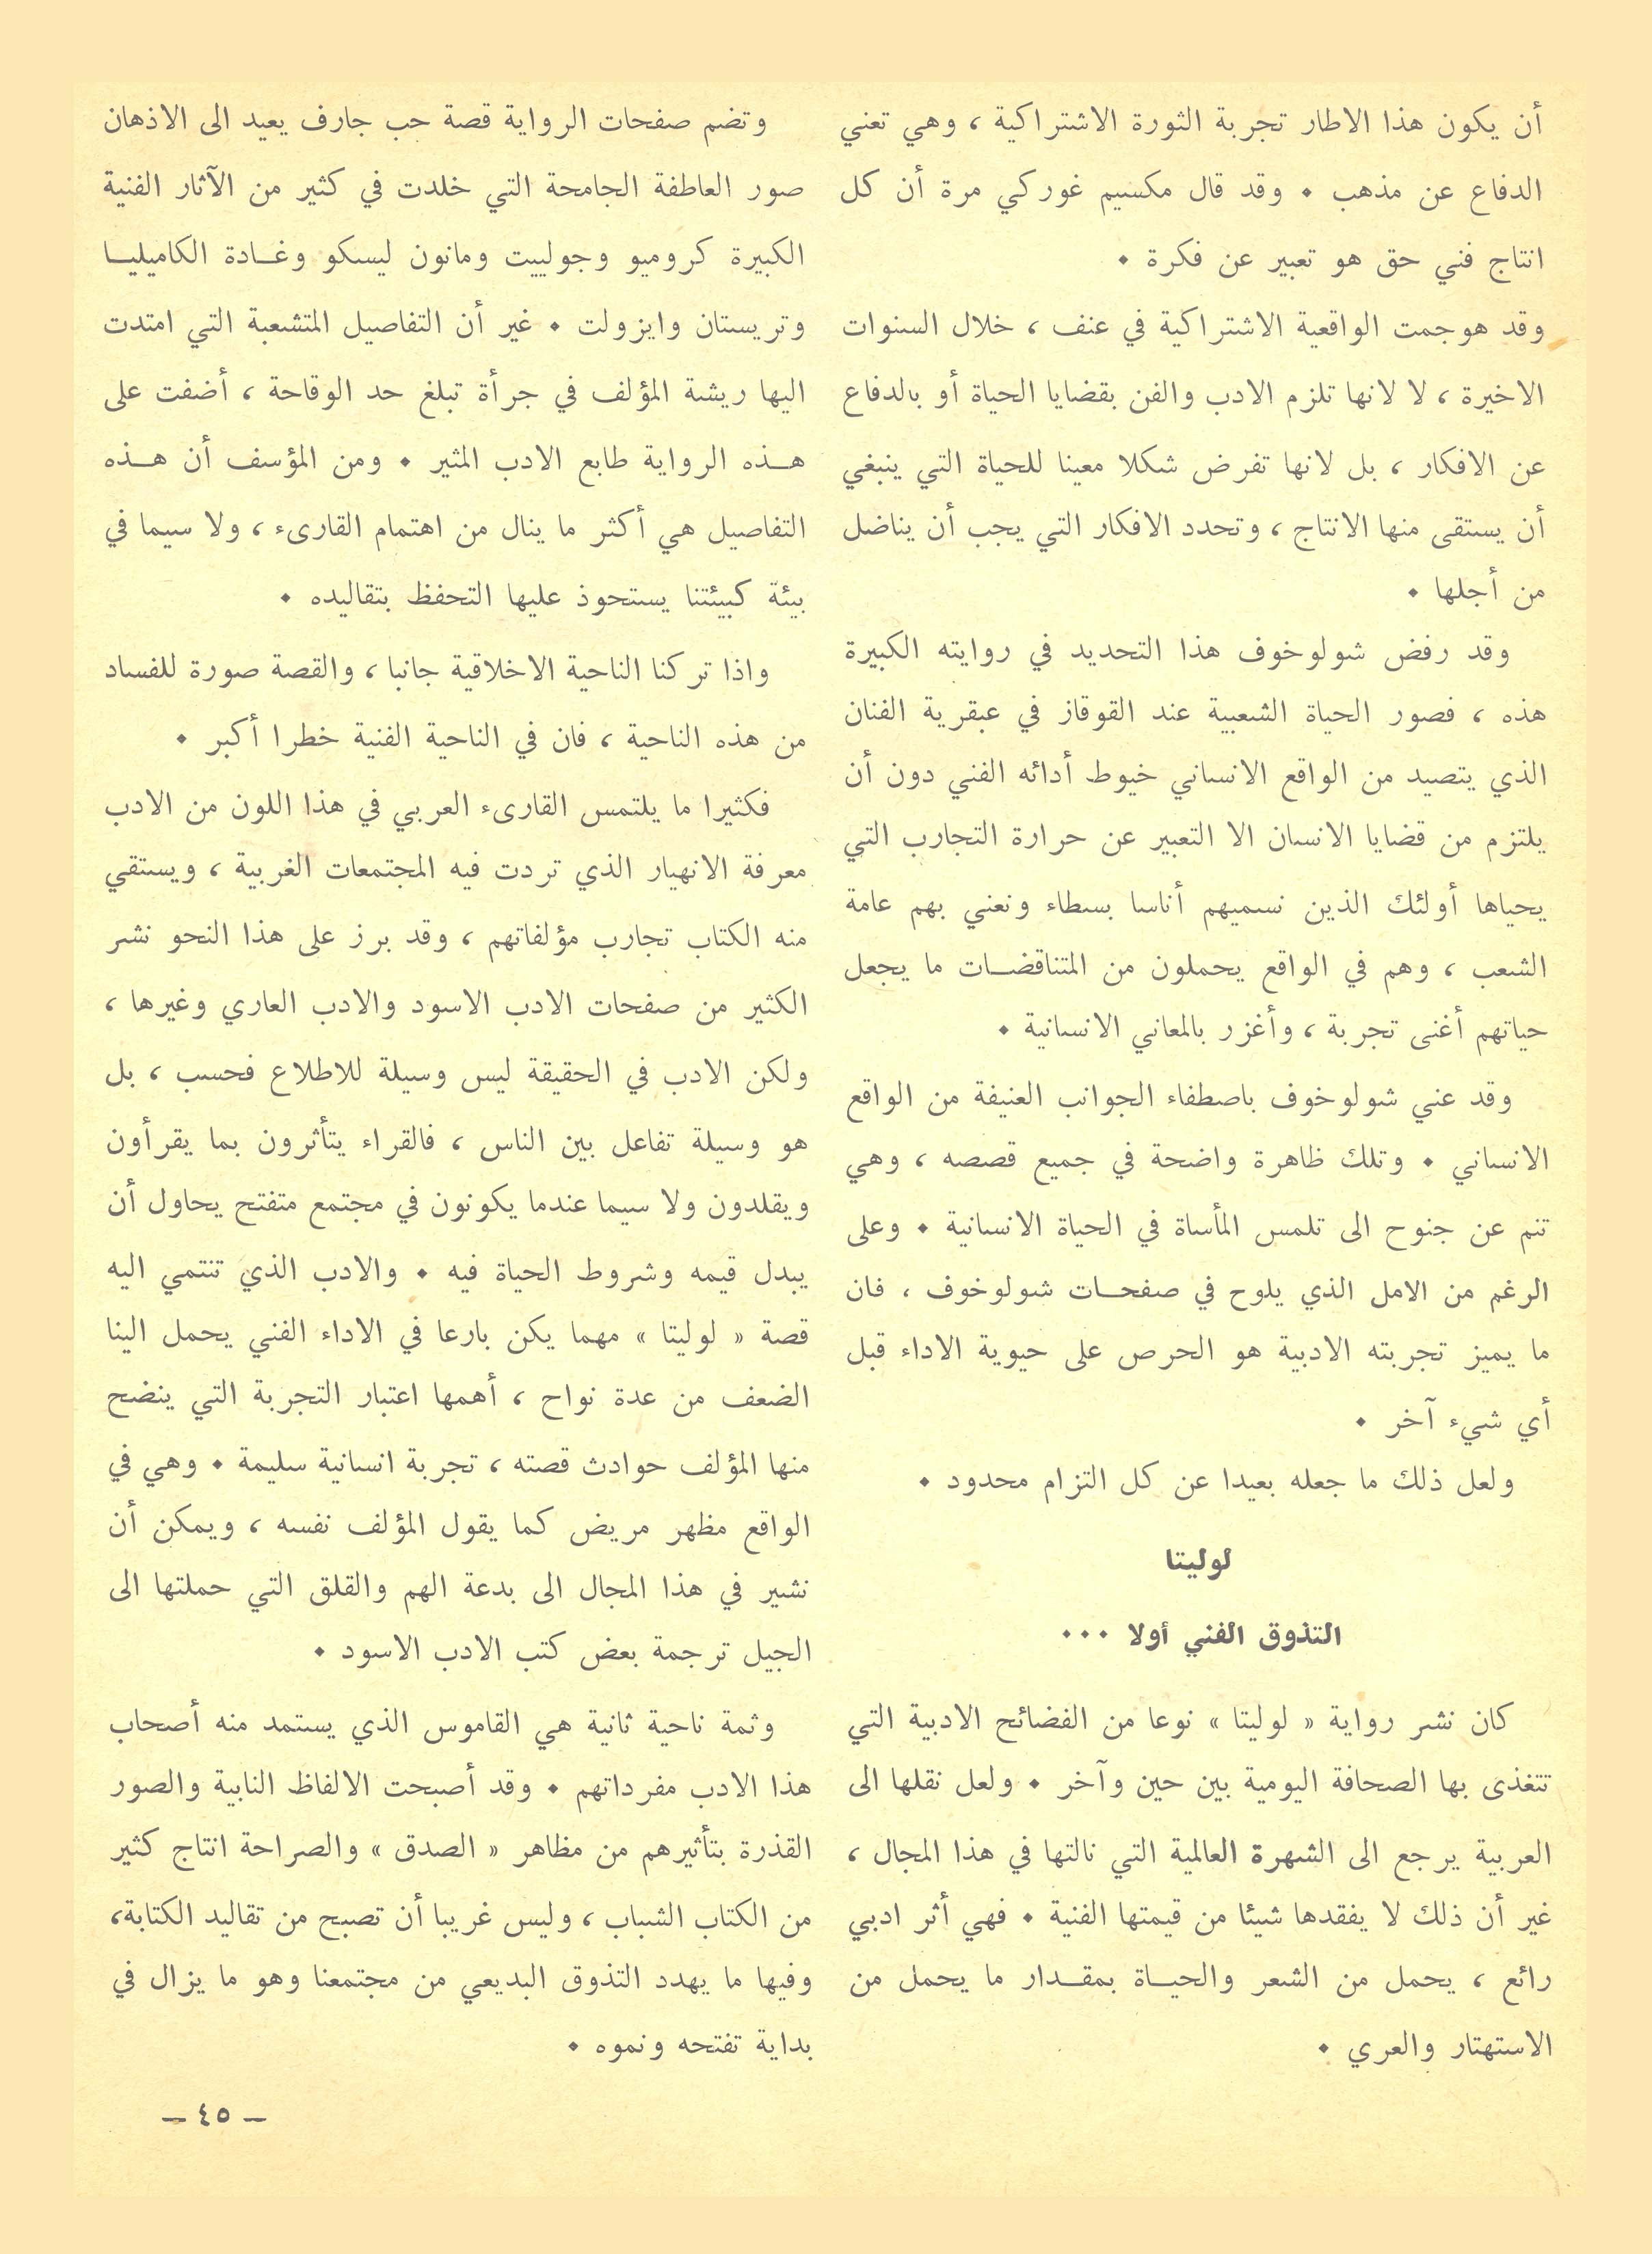 أن يكون هذا الاطار تجربة الثورة الاشتراكية ، وهي تعني
الدفاع عن مذهب • وقد قال مكسيم غوركي مرة أن كل
انتاج فني حق هو تعبير عن فكرة •
وقد هوجمت الواقعية الاشتراكية في عنف ، خلال السنوات
الاخيرة ، لا لانها تلزم الادب والفن بقضايا الحياة أو بالدفاع
عن الافكار ، بل لانها تفرض شكلا معينا للحياة التي ينبغي
أن يستقى منها الانتاج ، وتحدد الافكار التي يجب أن يناضل
من أجلها •
وقد رفض شولوخوف هذا التحديد في روايته الكبيرة
هذه ، فصور الحياة الشعبية عند القوقاز في عبقرية الفنان
الذي يتصيد من الواقع الانساني خيوط أدائه الفني دون أن
يلتزم من قضايا الانسان الا التعبير عن حرارة التجارب التي
يحياها أولئك الذين نسميهم أناسا بسطاء ونعني بهم عامة
الشعب ، وهم في الواقع يحملون من المتناقضـات ما يجعل
حياتهم أغنى تجربة ، وأغزر بالمعاني الانسانية •
وقد عني شولوخوف باصطفاء الجوانب العنيفة من الواقع
الانساني • وتلك ظاهرة واضحة في جميع قصصه ، وهي
تنم عن جنوح الى تلمس المأساة في الحياة الانسانية • وعلى
الرغم من الامل الذي يلوح في صفحـات شولوخوف ، فان
ما يميز تجربته الادبية هو الحرص على حيوية الاداء قبل
أي شيء آخر •
ولعل ذلك ما جعله بعيدا عن كل التزام محدود •
لوليتا
التذوق الفني أولا •••
كان نشر رواية « لوليتا » نوعا من الفضائح الادبية التي
تتغذى بها الصحافة اليومية بين حين وآخر • ولعل نقلها الى
العربية يرجع الى الشهرة العالمية التي نالتها في هذا المجال ،
غير أن ذلك لا يفقدها شيئا من قيمتها الفنية • فهي أثر ادبي
رائع ، يحمل من الشعر والحيـاة بمقـدار ما يحمل من
الاستهتار والعري •
وتضم صفحات الرواية قصة حب جارف يعيد الى الاذهان
صور العاطفة الجامحة التي خلدت في كثير من الآثار الفنية
الكبيرة كروميو وجولييت ومانون ليسكو وغـادة الكاميليـا
وتريستان وايزولت • غير أن التفاصيل المتشعبة التي امتدت
اليها ريشة المؤلف في جرأة تبلغ حد الوقاحة ، أضفت على
هـذه الرواية طابع الادب المثير • ومن المؤسف أن هـذه
التفاصيل هي أكثر ما ينال من اهتمام القارىء ، ولا سيما في
بيئة كبيئتنا يستحوذ عليها التحفظ بتقاليده •
واذا تركنا الناحية الاخلاقية جانبا ، والقصة صورة للفساد
من هذه الناحية ، فان في الناحية الفنية خطرا أكبر •
فكثيرا ما يلتمس القارىء العربي في هذا اللون من الادب
معرفة الانهيار الذي تردت فيه المجتمعات الغربية ، ويستقي
منه الكتاب تجارب مؤلفاتهم ، وقد برز على هذا النحو نشر
الكثير من صفحات الادب الاسود والادب العاري وغيرها ،
ولكن الادب في الحقيقة ليس وسيلة للاطلاع فحسب ، بل
هو وسيلة تفاعل بين الناس ، فالقراء يتأثرون بما يقرأون
ويقلدون ولا سيما عندما يكونون في مجتمع متفتح يحاول أن
يبدل قيمه وشروط الحياة فيه • والادب الذي تنتمي اليه
قصة « لوليتا » مهما يكن بارعا في الاداء الفني يحمل الينا
الضعف من عدة نواح ، أهمها اعتبار التجربة التي ينضح
منها المؤلف حوادث قصته ، تجربة انسانية سليمة • وهي في
الواقع مظهر مريض كما يقول المؤلف نفسه ، ويمكن أن
نشير في هذا المجال الى بدعة الهم والقلق التي حملتها الى
الجيل ترجمة بعض كتب الادب الاسود •
وثمة ناحية ثانية هي القاموس الذي يستمد منه أصحاب
هذا الادب مفرداتهم • وقد أصبحت الالفاظ النابية والصور
القذرة بتأثيرهم من مظاهر « الصدق » والصراحة انتاج كثير
من الكتاب الشباب ، وليس غريبا أن تصبح من تقاليد الكتابة،
وفيها ما يهدد التذوق البديعي من مجتمعنا وهو ما يزال في
بداية تفتحه ونموه •
— ٤٥ —